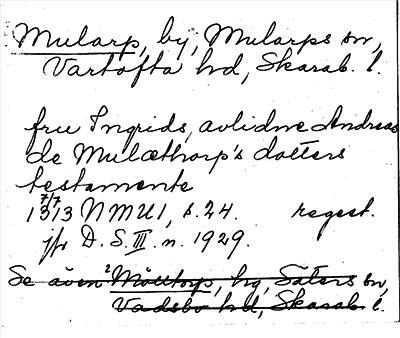 Mularp, by, Mularps sn,
Vartofta hd, Skarab. l.
fru Ingrids, avlidne Andreas
de Mulæthorp's dotters
testamente
7/7
1313 NMU1, s. 24. regest.
jfr D. S. III. n. 1929.
Se även ²Mölltorp, hg, Säters sn,
Vadsbo hd, Skarab. l.